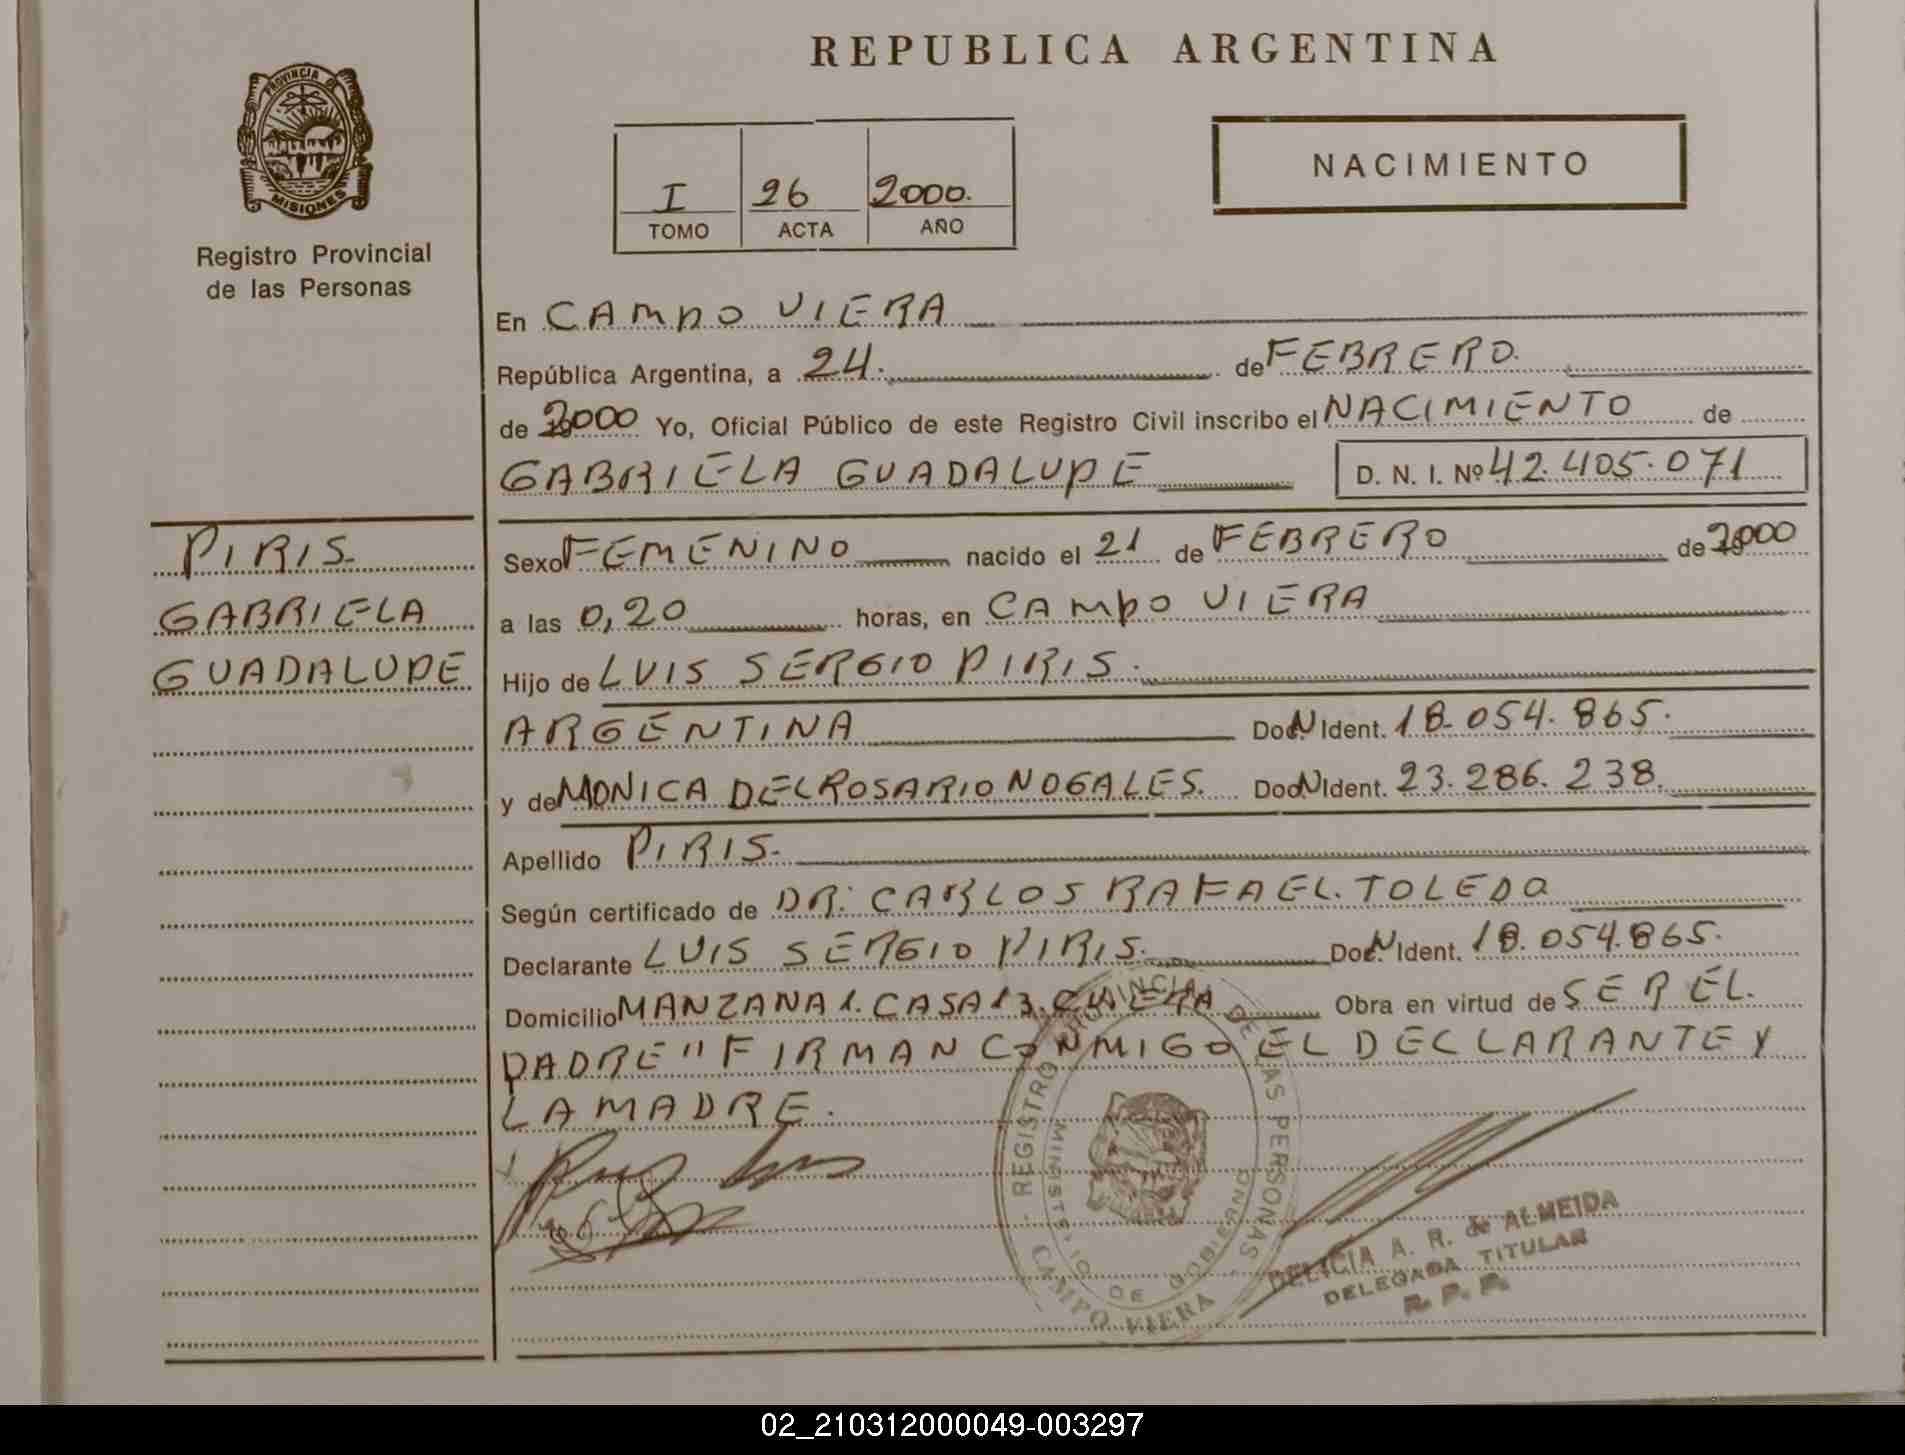 REPUBLICA ARGENTINA
PROVINCIA DE
MISIONES
Registro Provincial
de las Personas
I 26 2000.
TOMO ACTA AÑO
NACIMIENTO
En CAMPO VIERA
República Argentina, a 24. de FEBRERO.
de 2000 Yo, Oficial Público de este Registro Civil inscribo el NACIMIENTO de
GABRIELA GUADALUPE D. N. I. Nº 42.405.071
PIRIS.
GABRIELA
GUADALUPE
Sexo FEMENINO nacido el 21 de FEBRERO de 2000
a las 0,20 horas, en CAMPO VIERA
Hijo de LUIS SERGIO PIRIS.
ARGENTINA Doc. N Ident. 18.054.865.
y de MONICA DEL ROSARIO NOGALES. Doc. N Ident. 23.286.238.
Apellido PIRIS.
Según certificado de DR: CARLOS RAFAEL. TOLEDO
Declarante LUIS SERGIO PIRIS. Doc. N Ident. 18.054.865.
Domicilio MANZANA 1. CASA 13. Obra en virtud de SER EL.
PADRE" FIRMAN CONMIGO EL DECLARANTE Y
LA MADRE.
REGISTRO PROVINCIAL DE LAS PERSONAS
MINISTERIO DE GOBIERNO
CAMPO VIERA
DELICIA A. R. de ALMEIDA
DELEGADA TITULAR
R. P. P.
02_210312000049-003297